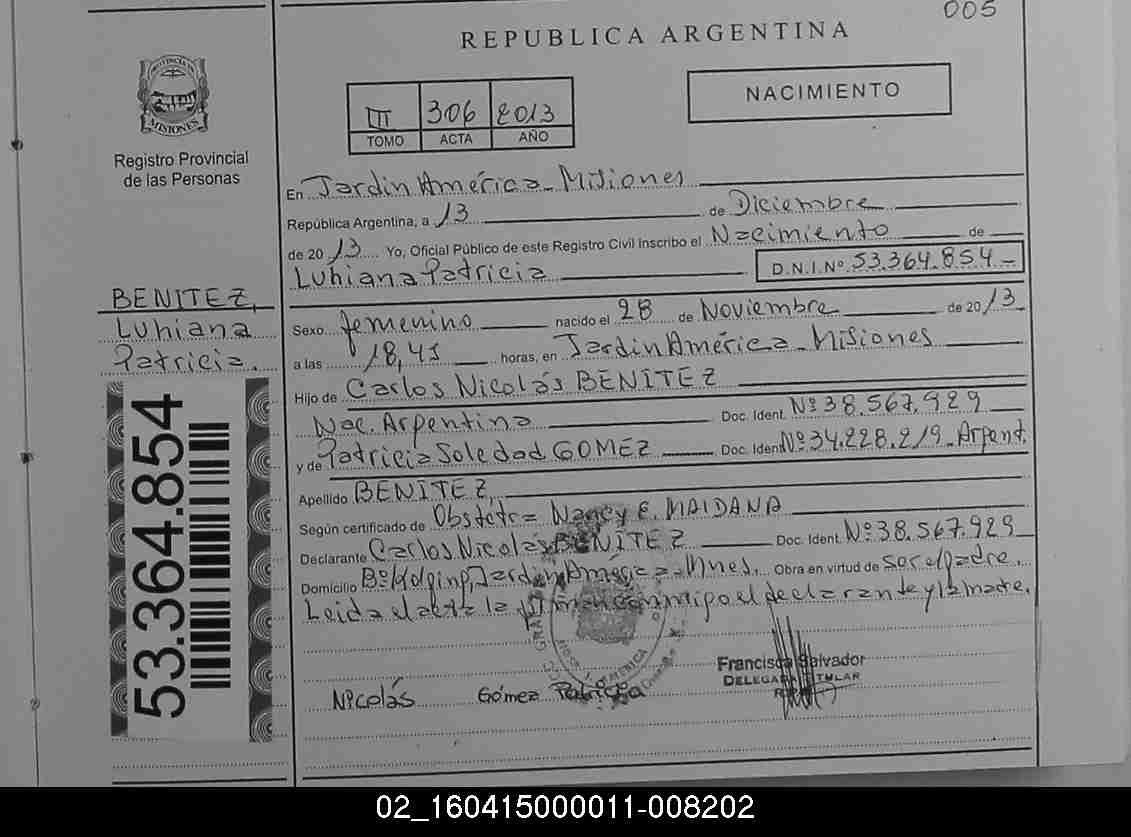 005
REPUBLICA ARGENTINA
PROVINCIA DE
MISIONES
Registro Provincial
de las Personas
III 306 2013
TOMO ACTA AÑO
NACIMIENTO
En Jardin América - Misiones
República Argentina, a 13 de Diciembre
de 20 13 Yo, Oficial Público de este Registro Civil Inscribo el Nacimiento de
Luhiana Patricia D.N.I. Nº 53.364.854 -
BENITEZ,
Luhiana
Patricia.
53.364.854
Sexo femenino nacido el 28 de Noviembre de 20 13
a las 18,45 horas, en Jardin América - Misiones
Hijo de Carlos Nicolás BENITEZ
Nac. Argentina Doc. Ident. Nº 38.567.929
y de Patricia Soledad GOMEZ Doc. Ident Nº 34.228.219 - Argent.
Apellido BENITEZ,
Según certificado de Obstetra Nancy E. MAIDANA
Declarante Carlos Nicolas BENITEZ Doc. Ident. Nº 38.567.929
Domicilio Bº Jardin America - Mnes. Obra en virtud de ser el padre.
Leida el acta la firman conmigo el declarante y la madre.
AMERICA
Nicolás Gómez Patricia
Francisca Salvador
DELEGADA TITULAR
02_160415000011-008202